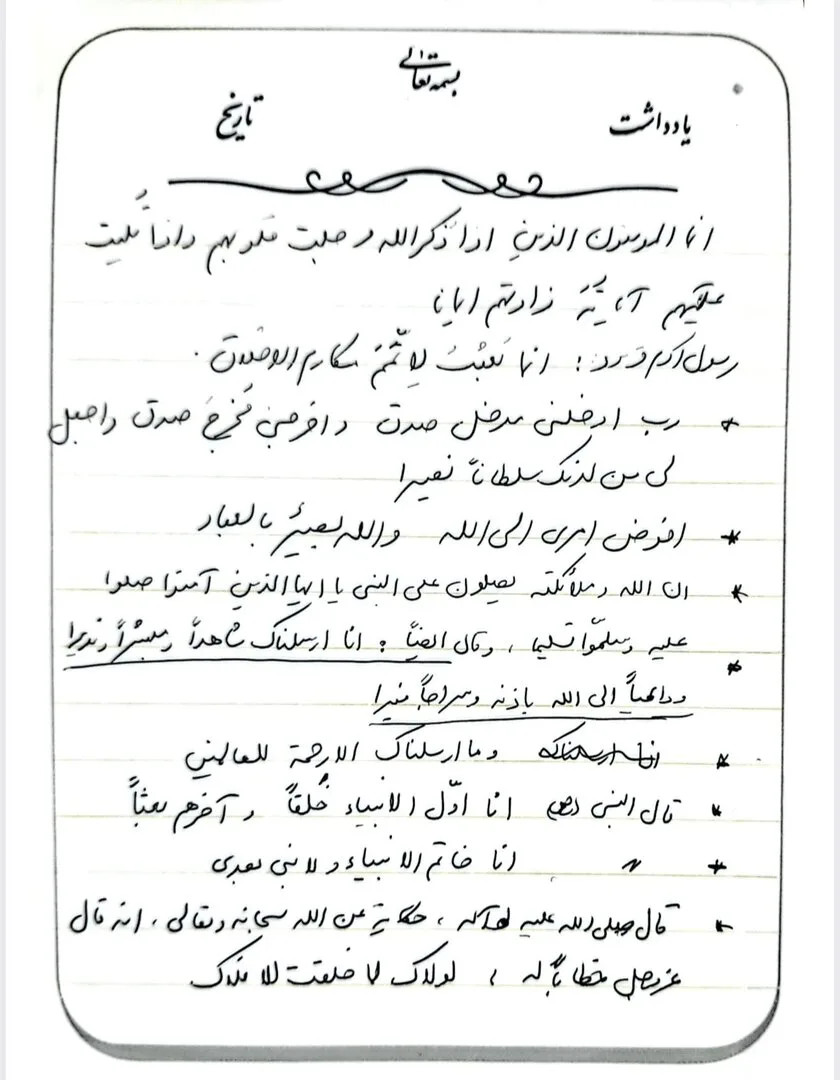 بسمه تعالی
یادداشت
تاریخ
انما المومنون الذین اذا ذکر الله وجلت قلوبهم واذا تُلیت
علیهم آیاتهُ زادتهم ایمانا
رسول اکرم فرمود: انما بُعِثْتُ لِاُتَمِّمَ مکارم الاخلاق.
* رب ادخلنی مدخل صدق واخرجنی مُخرجَ صدق واجعل
لی من لدنک سلطاناً نصیرا
* افوض امری الی الله والله بصیرٌ بالعباد
* ان الله وملائکته یصلون علی النبی یا ایها الذین آمنوا صلوا
علیه وسلّموا تسلیما، وقال ایضاً: انا ارسلناک شاهداً ومبشراً ونذیرا
* وداعیاً الی الله باذنه وسراجاً منیرا
* وما ارسلناک الا رحمة للعالمین
* قال النبی (ص) انا اوّل الانبیاء خُلقاً وآخرهم بعثاً
* 〃 انا خاتم الانبیاء ولا نبی بعدی
* قال صلی الله علیه وآله، حکایة عن الله سبحانه وتعالی، انه قال
عزوجل خطاباً له، لولاک لما خلقت الافلاک